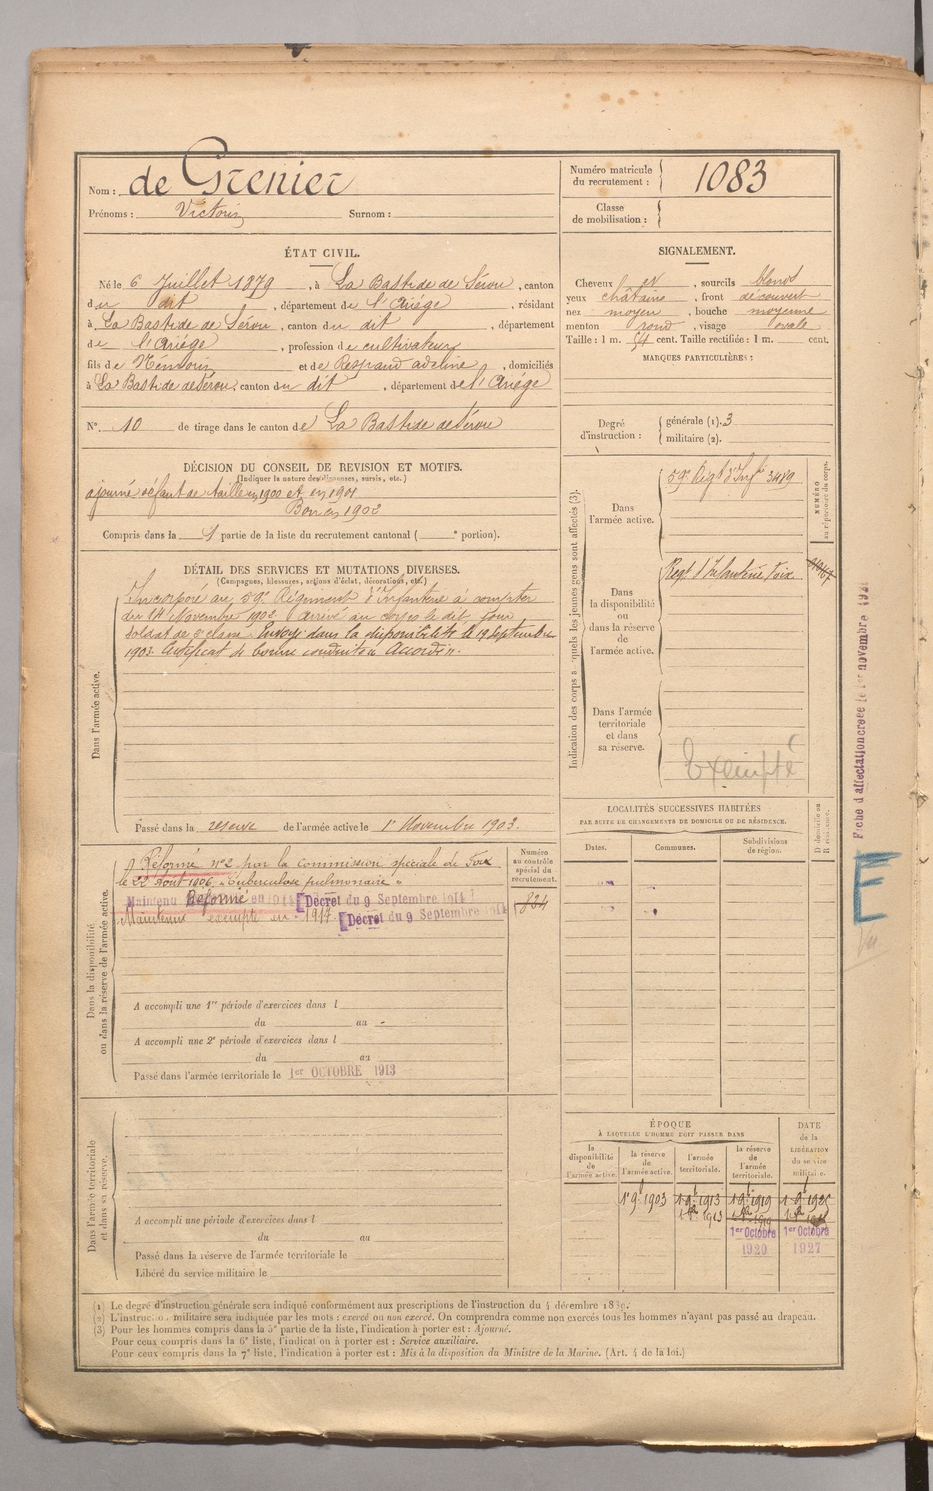 Nom : de Grenier
Prénoms : Victorin Surnom :
Numéro matricule du recrutement : 1083
Classe de mobilisation :
ÉTAT CIVIL.
Né le 6 Juillet 1879, à La Bastide de Sérou, canton
du dit, département de l'Ariège, résidant
à La Bastide de Sérou, canton du dit, département
de l'Ariège, profession de cultivateur
fils de Némorin et de Respaud adeline, domiciliés
à La Bastide de Sérou, canton du dit, département de l'Ariège
N° 10 de tirage dans le canton de La Bastide de Sérou
SIGNALEMENT.
Cheveux et, sourcils blond
yeux châtains, front découvert
nez moyen, bouche moyenne
menton rond, visage ovale
Taille : 1 m. 54 cent. Taille rectifiée : 1 m. cent.
MARQUES PARTICULIÈRES :
Degré d'instruction : générale (1). 3
militaire (2).
DÉCISION DU CONSEIL DE REVISION ET MOTIFS.
(Indiquer la nature des dispenses, sursis, etc.)
ajourné défaut de taille en 1900 et en 1901
Bon en 1902
Compris dans la 1 partie de la liste du recrutement cantonal ( ° portion).
DÉTAIL DES SERVICES ET MUTATIONS DIVERSES.
(Campagnes, blessures, actions d'éclat, décorations, etc.)
Dans l'armée active.
Incorporé au 59e Régiment d'Infanterie à compter
du 14 Novembre 1902. Arrivé au corps le dit jour
soldat de 2e classe. Envoyé dans la disponibilité le 19 septembre
1903. Certificat de bonne conduite Accordé.
Passé dans la réserve de l'armée active le 1er Novembre 1903.
Indication des corps auxquels les jeunes gens sont affectés (3).
NUMÉRO au répertoire du corps.
Dans l'armée active.
59e Régt d'Infie 3489
Dans la disponibilité ou dans la réserve de l'armée active.
Régt d'Infanterie Foix
Dans l'armée territoriale et dans sa réserve.
Exempté
LOCALITÉS SUCCESSIVES HABITÉES
PAR SUITE DE CHANGEMENTS DE DOMICILE OU DE RÉSIDENCE.
D domicile ou R résidence.
Dates. Communes. Subdivisions de région.
Dans la disponibilité ou dans la réserve de l'armée active.
Numéro au contrôle spécial du recrutement.
Réformé n°2 par la commission spéciale de Foix
le 22 août 1906 "Tuberculose pulmonaire"
Maintenu Réformé en 1914 Décret du 9 Septembre 1914
Maintenu exempté en 1917 Décret du 9 Septembre 1914
834
A accompli une 1re période d'exercices dans l
du au
A accompli une 2e période d'exercices dans l
du au
Passé dans l'armée territoriale le 1er OCTOBRE 1913
Dans l'armée territoriale et dans sa réserve.
A accompli une période d'exercices dans l
du au
Passé dans la réserve de l'armée territoriale le
Libéré du service militaire le
ÉPOQUE
À LAQUELLE L'HOMME DOIT PASSER DANS
la disponibilité de l'armée active.
la réserve de l'armée active.
l'armée territoriale.
la réserve de l'armée territoriale.
DATE de la LIBÉRATION du service militaire.
1903 1913 1919
1913 1919
1er Octobre 1920
1er Octobre 1927
Fiche d'affectation créée le 1er novembre
E
(1) Le degré d'instruction générale sera indiqué conformément aux prescriptions de l'instruction du 4 décembre 1889.
(2) L'instruction militaire sera indiquée par les mots : exercé ou non exercé. On comprendra comme non exercés tous les hommes n'ayant pas passé au drapeau.
(3) Pour les hommes compris dans la 5e partie de la liste, l'indication à porter est : Ajourné.
Pour ceux compris dans la 6e liste, l'indication à porter est : Service auxiliaire.
Pour ceux compris dans la 7e liste, l'indication à porter est : Mis à la disposition du Ministre de la Marine. (Art. 4 de la loi.)